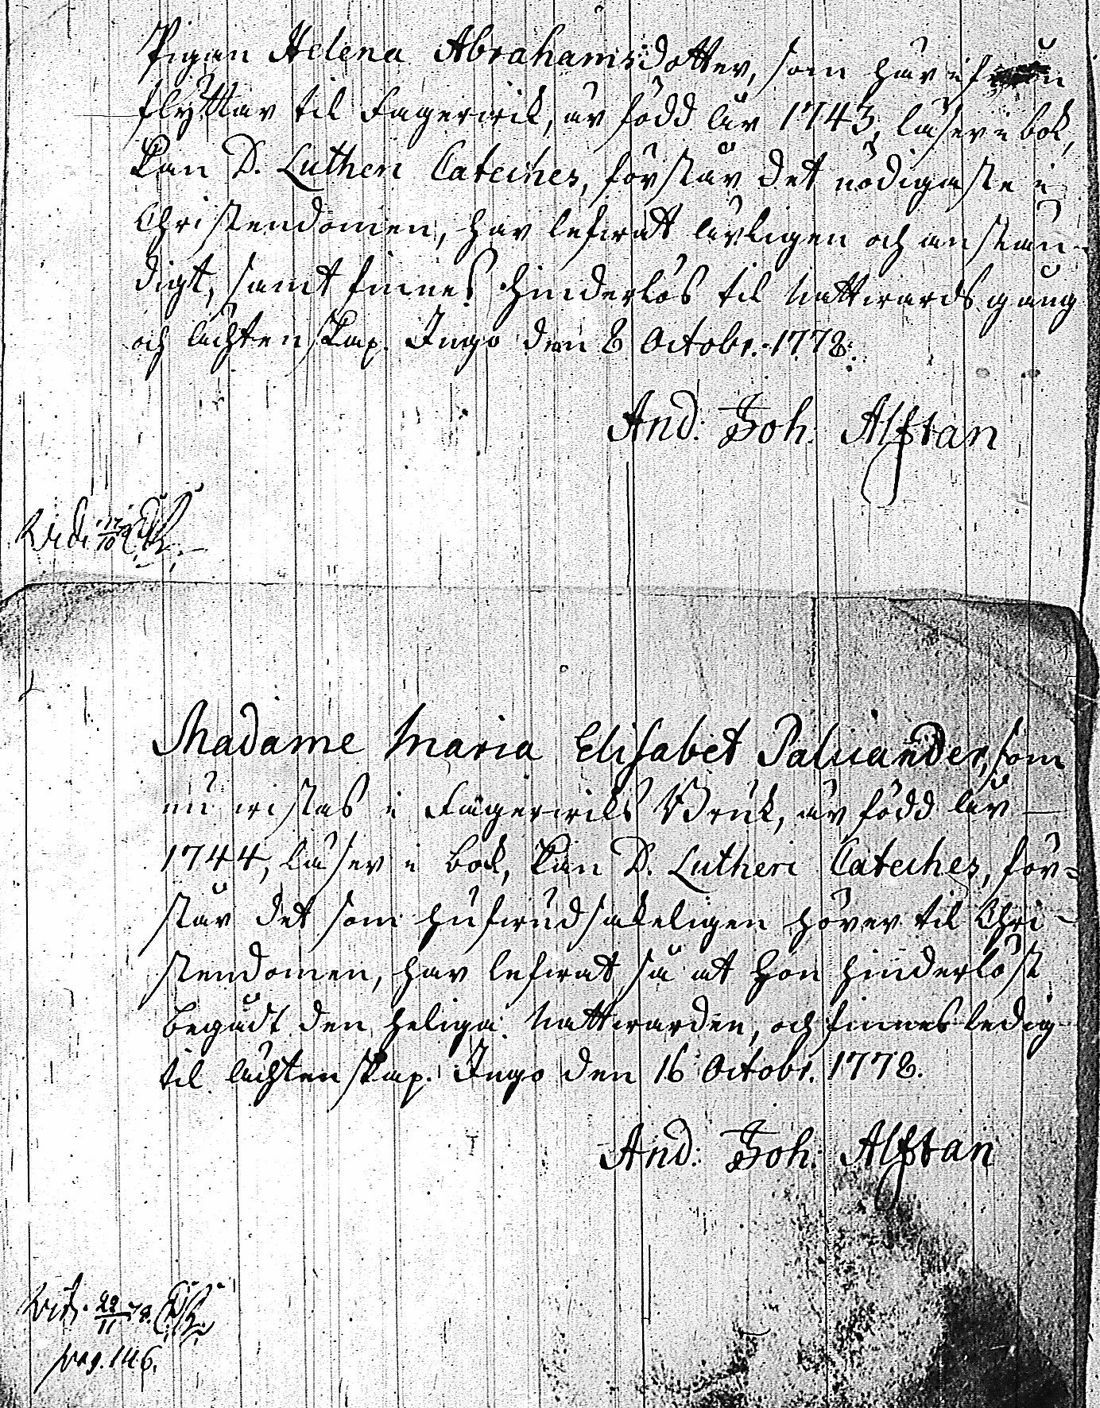 Pigan Helena Abrahamsdotter, som här ifrån
flyttar til Fagerwik, är född år 1743, läser i bok,
kan D. Lutheri Cateches, förstår det nödigaste i
Christendomen, har lefwat ärligen och anstän-
digt, samt finnes hinderlös til Nattwardsgång
och ächtenskap. Ingo den 8 Octobr. 1778.
And: Joh: Alftan
Vidi 17/10
Madame Maria Elisabet Paluander, som
nu wistas i Fagerwiks Bruk, är född år
1744, läser i bok, kan D. Lutheri Cateches, för=
står det som hufwudsakeligen hörer til Chri-
stendomen, har lefwat så at hon hinderlöst
begådt den heliga Nattwarden, och finnes ledig
til ächtenskap. Ingo den 16 Octobr. 1778.
And: Joh: Alftan
Vidi. 22/11 78.
pag. 146.